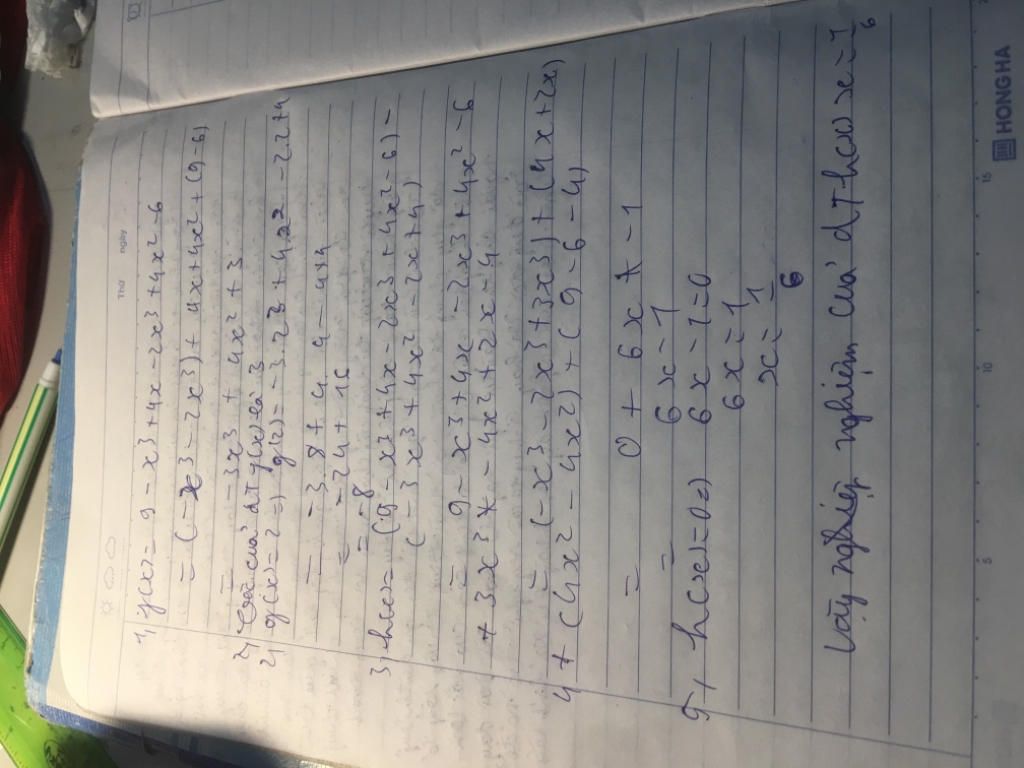 Thứ ngày
1, y(x) = 9 - x3 + 4x - 2x3 + 4x2 - 6
= (-x3 - 2x3) + 4x + 4x2 + (9-6)
= -3x3 + 4x2 + 3
2, của đaT y(x) là 3
2, g(x) = 2 =) g(2) = -3.23 + 4.22 - 2.2 + 4
= -3.8 + 4.4 - 4+4
= -24 + 16
= -8
3, h(x) = (9 - x3 + 4x - 2x3 + 4x2 - 6) -
(-3x3 + 4x2 - 2x + 4)
= 9 - x3 + 4x - 2x3 + 4x2 - 6
+ 3x3 - 4x2 + 2x - 4
= (-x3 - 2x3 + 3x3) + (4x + 2x)
4 + (4x2 - 4x2) + (9 - 6 - 4)
= 0 + 6x - 1
= 6x - 1
5, h(x) = 0 =) 6x - 1 = 0
6x = 1
x = 1
6
Vậy nghiệm của đT h(x) x = 1
6
HONG HA
5 10 15